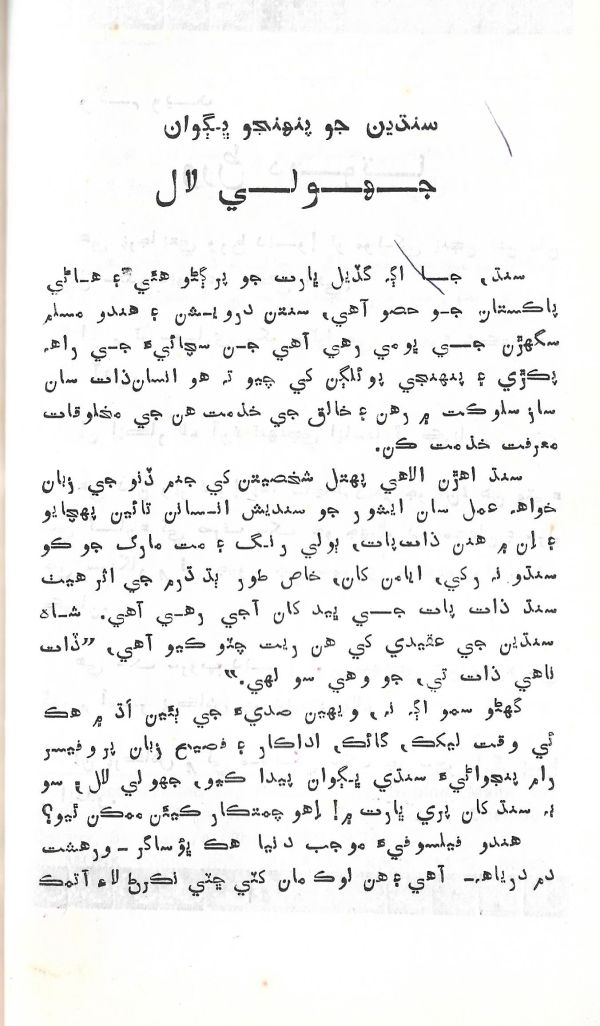 سنڌين جو پنهنجو ڀڳوان
جهولي لال
سنڌ، جا اڳ گڏيل ڀارت جو پرڳڻو هئي ۽ هاڻي
پاڪستان جو حصو آهي، سنتن درويشن ۽ هندو مسلم
سگهڙن جي ڀومي رهي آهي جن سچائيءَ جي راھ
پڪڙي ۽ پنهنجي پوئلڳن کي چيو تہ هو انسان ذات سان
ساڻ سلوڪت ۾ رهن ۽ خالق جي خدمت هن جي مخلوقات
معرفت خدمت ڪن.
سنڌ اهڙن الاهي پهتل شخصيتن کي جنم ڏنو جي زبان
خواھ عمل سان ايشور جو سنديش انسانن تائين پهچايو
۽ اِن ۾ هنن ذات پات، ٻولي رنگ ۽ مت مارگ جو ڪو
سنڌو نہ رکي، ايامن کان، خاص طور ٻڌ ڌرم جي اثر هيٺ
سنڌ ذات پات جي ڀيد کان آجي رهي آهي. شاھ
سنڌين جي عقيدي کي هن ريت چٽو ڪيو آهي، ”ذات
ناهي ذات تي، جو وهي سو لهي.“
گهڻو سمو اڳ نہ، ويهين صديءَ جي ٻئين اڌ ۾ هڪ
ئي وقت ليکڪ، گائڪ، اداڪار ۽ فصيح زبان پروفيسر
رام پنجواڻيءَ سنڌي ڀڳوان پيدا ڪيو، جهولي لال، سو
بہ سنڌ کان پري ڀارت ۾! اِهو چمتڪار ڪيئن ممڪن ٿيو؟
هندو فيلسوفيءَ موجب دنيا هڪ ڀؤساگر - ورهشت
دم درياھ - آهي ۽ هن لوڪ مان کٽي ڇٽي نڪرڻ لاءِ آتمڪ